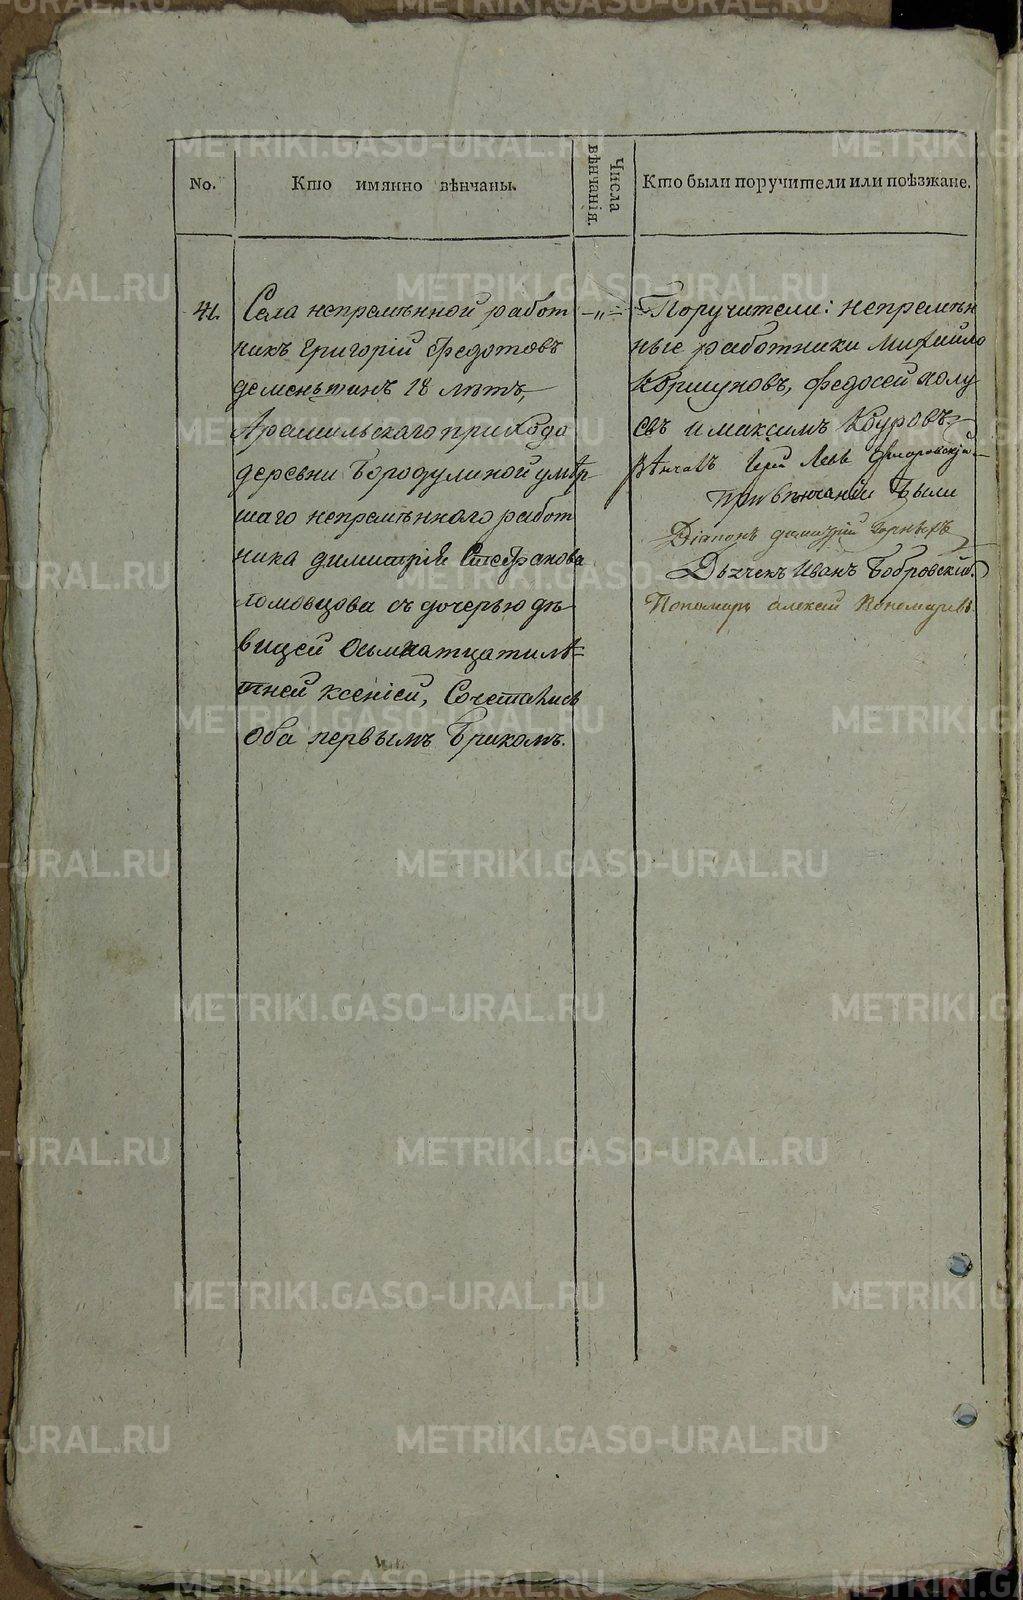 No.
Кто имянно вѣнчаны.
Числа вѣнчанія.
Кто были поручители или поѣзжане.
41.
Села непремѣнной работ
никъ Григорій Федотовъ
деменьшинъ 18 лѣтъ,
Арамильскаго прихода
деревни Бородулиной умѣр
шаго непремѣннаго работ
ника димитрія Стефанова
съ дочерью дѣ
вицей осьмнатцатилѣ=
тней ксеніей, Сочетались
оба первымъ бракомъ.
— „ =
Поручители: непремѣн
ные работники михайло
Коршуновъ, федосей полу
евъ и максимъ Кауровъ.
вѣнчалъ Іерей Левъ
при вѣнчаніи были
Діаконъ димитрій
Дьячекъ Иванъ Бобровскій.
Пономарь алексей Пономаревъ
METRIKI.GASO-URAL.RU